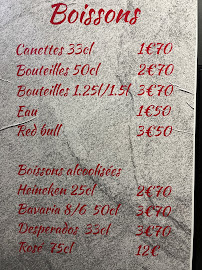 Boissons
Canettes 33cl 1€70
Bouteilles 50cl 2€70
Bouteilles 1.25l/1.5l 3€70
Eau 1€50
Red bull 3€50
Boissons alcoolisées
Heineken 25cl 2€70
Bavaria 8/6 50cl 3€70
Desperados 33cl 3€70
Rosé 75cl 12€